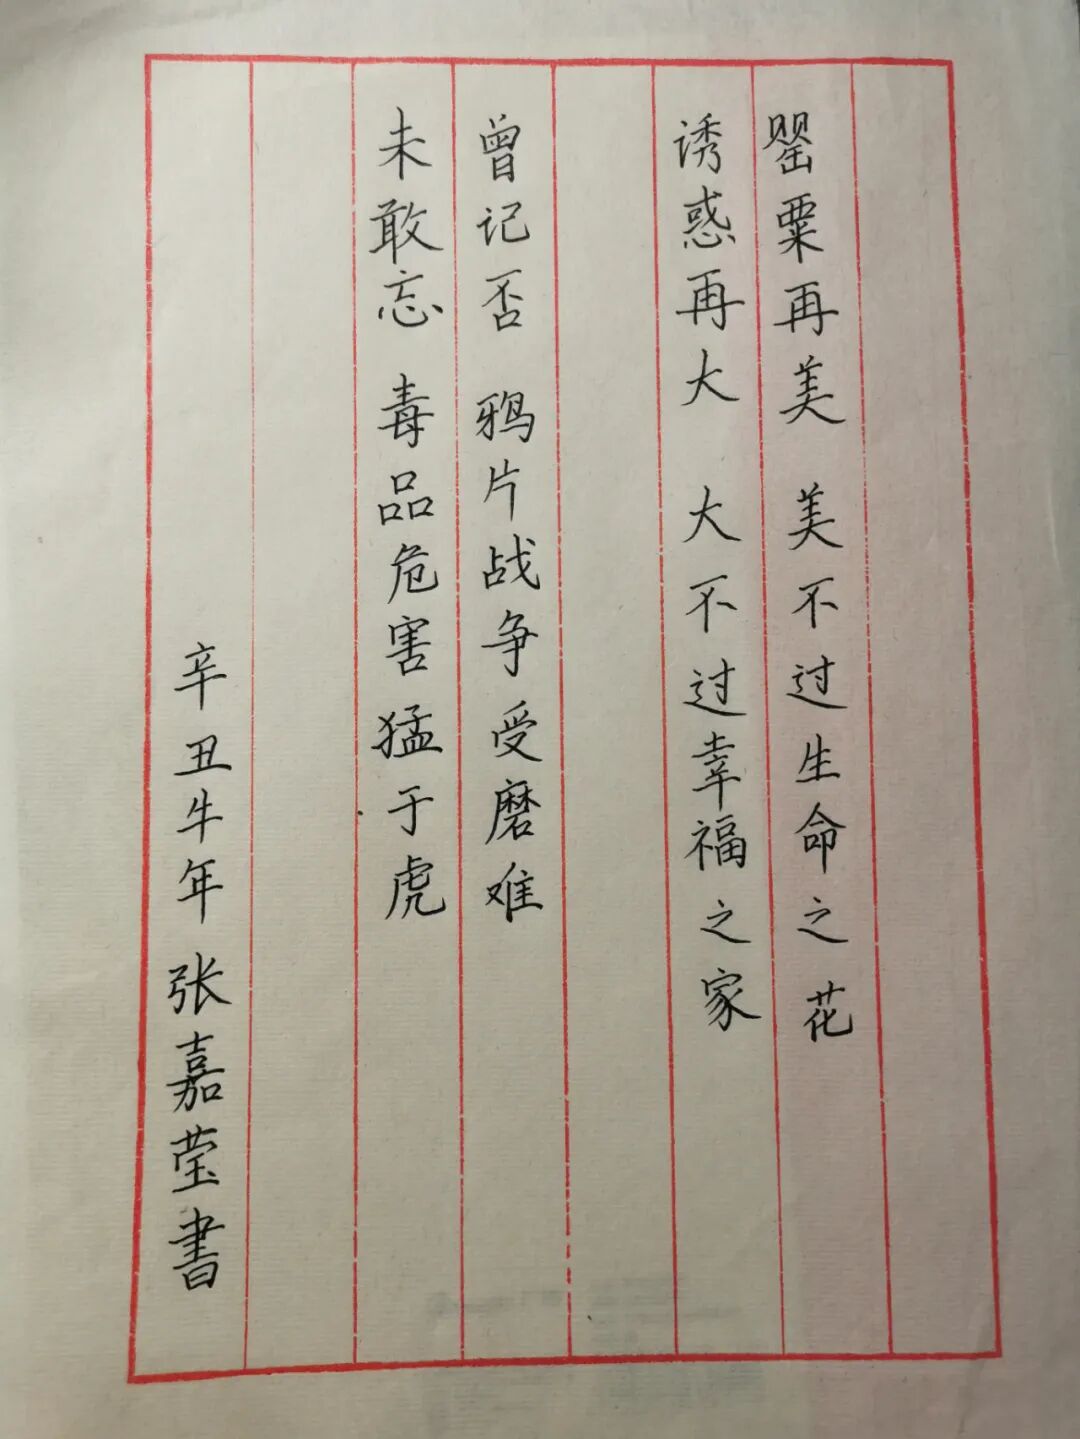 罂粟再美 美不过生命之花
诱惑再大 大不过幸福之家
曾记否 鸦片战争受磨难
未敢忘 毒品危害猛于虎
辛丑牛年 张嘉莹書